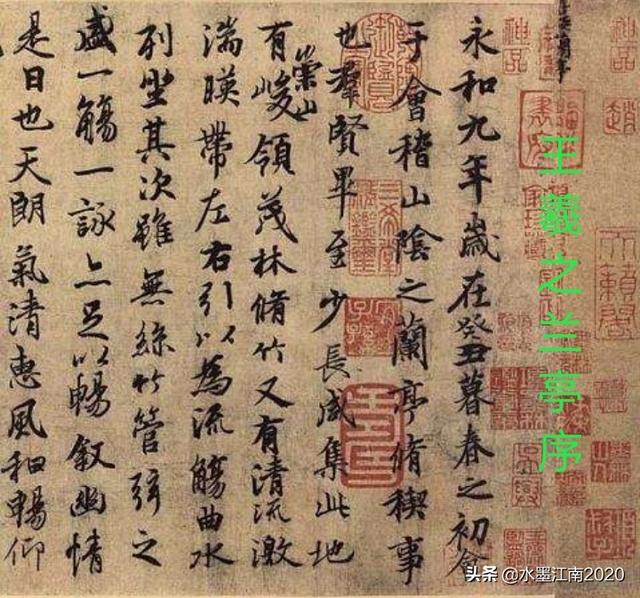 神品
趙
天籟閣
神品
王羲之兰亭序
永和九年歲在癸丑暮春之初會
于會稽山陰之蘭亭脩稧事
也羣賢畢至少長咸集此地
有崇山峻領茂林脩竹又有清流激
湍暎帶左右引以為流觴曲水
列坐其次雖無絲竹管弦之
盛一觴一詠亦足以暢敘幽情
是日也天朗氣清惠風和暢仰
头条 @水墨江南2020